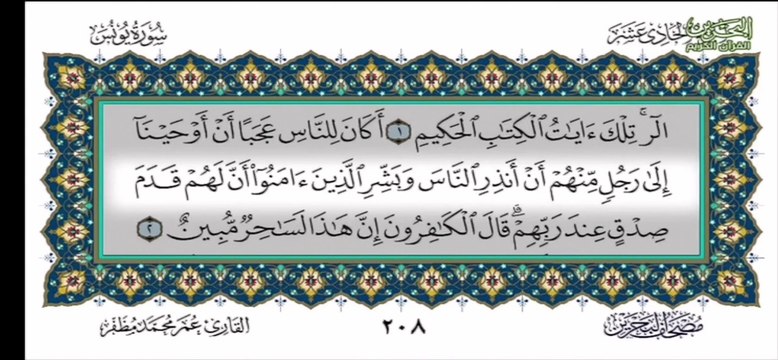 سُورَةُ يُونُسَ
الحَادِي عَشَر
البحرين
القرآن الكريم
الٓرۚ تِلۡكَ ءَايَٰتُ ٱلۡكِتَٰبِ ٱلۡحَكِيمِ ١ أَكَانَ لِلنَّاسِ عَجَبًا أَنۡ أَوۡحَيۡنَآ
إِلَىٰ رَجُلٖ مِّنۡهُمۡ أَنۡ أَنذِرِ ٱلنَّاسَ وَبَشِّرِ ٱلَّذِينَ ءَامَنُوٓاْ أَنَّ لَهُمۡ قَدَمَ
صِدۡقٍ عِندَ رَبِّهِمۡۗ قَالَ ٱلۡكَٰفِرُونَ إِنَّ هَٰذَا لَسَٰحِرٞ مُّبِينٌ ٢
مصحف البحرين
٢٠٨
القارئ عمر محمد مظفر